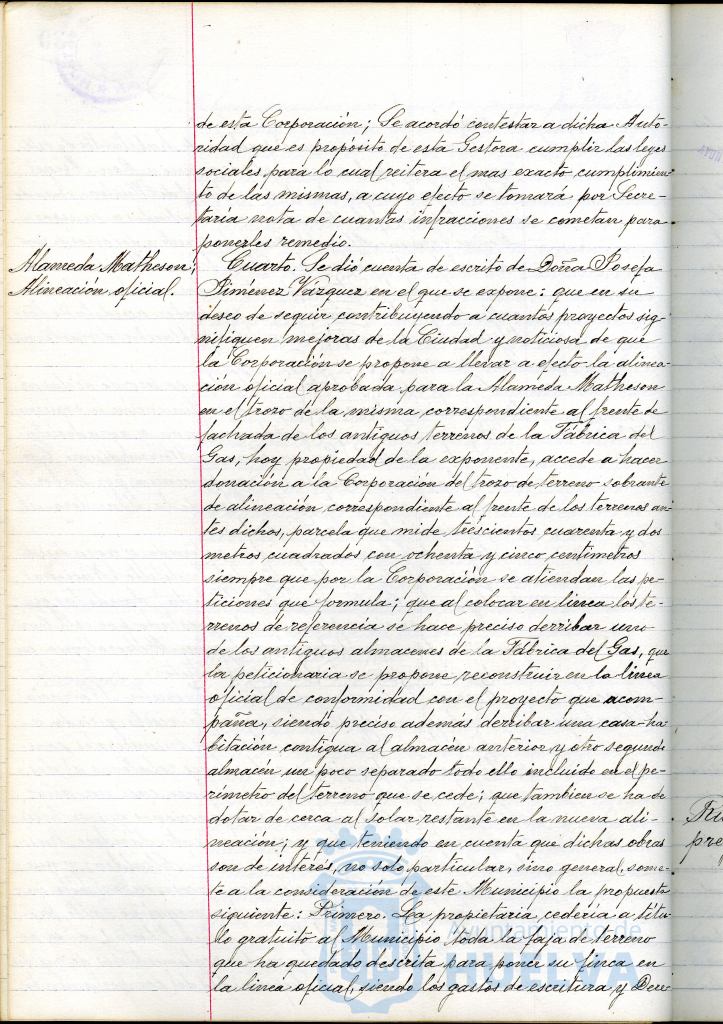 de esta Corporación; Se acordó contestar a dicha Auto-
ridad que es propósito de esta Gestora cumplir las leyes
sociales para lo cual reitera el mas exacto cumplimien-
to de las mismas, a cuyo efecto se tomará por Secre-
taría nota de cuantas infracciones se cometan para
ponerles remedio.
Alameda Matheson;
Alineación oficial.
Cuarto. Se dió cuenta de escrito de Doña Josefa
Jiménez Vázquez en el que se expone: que en su
deseo de seguir contribuyendo a cuantos proyectos sig-
nifiquen mejoras de la Ciudad y noticiosa de que
la Corporación se propone a llevar a efecto la alinea-
ción oficial aprobada para la Alameda Matheson
en el trozo de la misma, correspondiente al frente de
fachada de los antiguos terrenos de la Fábrica del
Gas, hoy propiedad de la exponente, accede a hacer
donación a la Corporación del trozo de terreno sobrante
de alineación, correspondiente al frente de los terrenos an-
tes dichos, parcela que mide trescientos cuarenta y dos
metros cuadrados con ochenta y cinco centímetros
siempre que por la Corporación se atiendan las pe-
ticiones que formula; que al colocar en línea los te-
rrenos de referencia se hace preciso derribar uno
de los antiguos almacenes de la Fábrica del Gas, que
la peticionaria se propone reconstruir en la línea
oficial de conformidad con el proyecto que acom-
paña, siendo preciso además derribar una casa-ha-
bitación contigua al almacén anterior y otro segundo
almacén un poco separado todo ello incluido en el pe-
rímetro del terreno que se cede; que tambien se ha de
dotar de cerca al solar restante en la nueva ali-
neación; y que teniendo en cuenta que dichas obras
son de interés, no solo particular, sino general, some-
te a la consideración de este Municipio la propuesta
siguiente: Primero. La propietaria cedería a títu-
lo gratuito al Municipio toda la faja de terreno
que ha quedado descrita para poner su finca en
la línea oficial, siendo los gastos de escritura y Dere-
Ayuntamiento de
HUELVA
pre